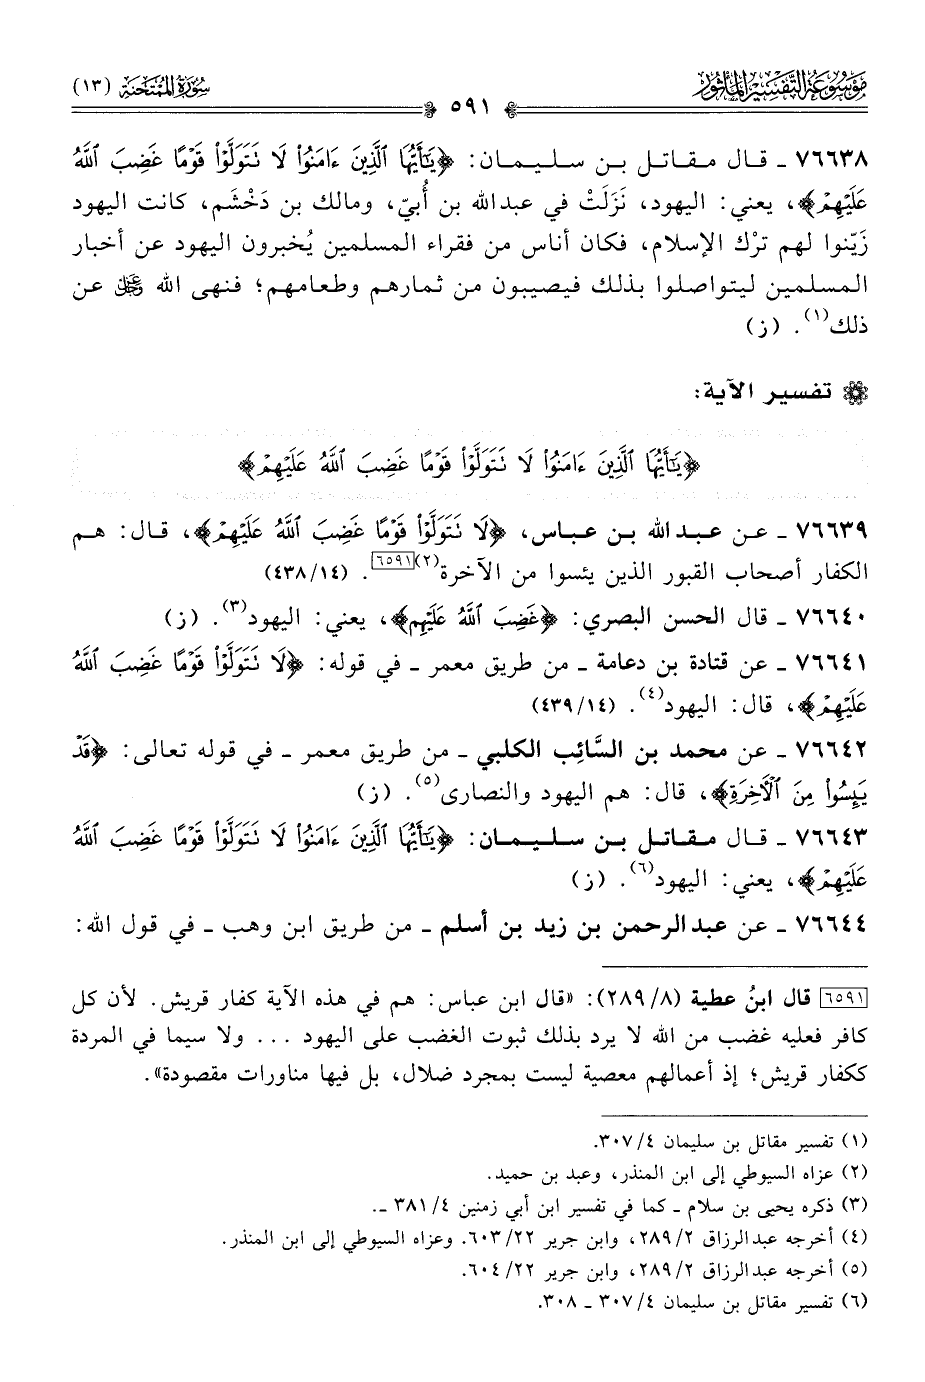 موسوعة التفسير المأثور
سورة الممتحنة (١٣)
٥٩١
٧٦٦٣٨ ـ قال مقاتل بن سليمان: ﴿يَٰٓأَيُّهَا ٱلَّذِينَ ءَامَنُوا۟ لَا تَتَوَلَّوْا۟ قَوْمًا غَضِبَ ٱللَّهُ
عَلَيْهِمْ﴾، يعني: اليهود، نَزَلَتْ في عبدالله بن أُبيّ، ومالك بن دَخْشَم، كانت اليهود
زَيّنوا لهم ترْك الإسلام، فكان أناس من فقراء المسلمين يُخبرون اليهود عن أخبار
المسلمين ليتواصلوا بذلك فيصيبون من ثمارهم وطعامهم؛ فنهى الله ﷿ عن
ذلك(١). (ز)
تفسير الآية:
﴿يَٰٓأَيُّهَا ٱلَّذِينَ ءَامَنُوا۟ لَا تَتَوَلَّوْا۟ قَوْمًا غَضِبَ ٱللَّهُ عَلَيْهِمْ﴾
٧٦٦٣٩ ـ عن عبدالله بن عباس، ﴿لَا تَتَوَلَّوْا۟ قَوْمًا غَضِبَ ٱللَّهُ عَلَيْهِمْ﴾، قال: هم
الكفار أصحاب القبور الذين يئسوا من الآخرة(٢)[٦٥٩١]. (٤٣٨/١٤)
٧٦٦٤٠ ـ قال الحسن البصري: ﴿غَضِبَ ٱللَّهُ عَلَيْهِم﴾، يعني: اليهود(٣). (ز)
٧٦٦٤١ ـ عن قتادة بن دعامة ـ من طريق معمر ـ في قوله: ﴿لَا تَتَوَلَّوْا۟ قَوْمًا غَضِبَ ٱللَّهُ
عَلَيْهِمْ﴾، قال: اليهود(٤). (٤٣٩/١٤)
٧٦٦٤٢ ـ عن محمد بن السَّائِب الكلبي ـ من طريق معمر ـ في قوله تعالى: ﴿قَدْ
يَئِسُوا۟ مِنَ ٱلْأَخِرَةِ﴾، قال: هم اليهود والنصارى(٥). (ز)
٧٦٦٤٣ ـ قال مقاتل بن سليمان: ﴿يَٰٓأَيُّهَا ٱلَّذِينَ ءَامَنُوا۟ لَا تَتَوَلَّوْا۟ قَوْمًا غَضِبَ ٱللَّهُ
عَلَيْهِمْ﴾، يعني: اليهود(٦). (ز)
٧٦٦٤٤ ـ عن عبدالرحمن بن زيد بن أسلم ـ من طريق ابن وهب ـ في قول الله:
[٦٥٩١] قال ابنُ عطية (٢٨٩/٨): «قال ابن عباس: هم في هذه الآية كفار قريش. لأن كل
كافر فعليه غضب من الله لا يرد بذلك ثبوت الغضب على اليهود ... ولا سيما في المردة
ككفار قريش؛ إذ أعمالهم معصية ليست بمجرد ضلال، بل فيها مناورات مقصودة».
(١) تفسير مقاتل بن سليمان ٣٠٧/٤.
(٢) عزاه السيوطي إلى ابن المنذر، وعبد بن حميد.
(٣) ذكره يحيى بن سلام ـ كما في تفسير ابن أبي زمنين ٣٨١/٤ ـ.
(٤) أخرجه عبدالرزاق ٢٨٩/٢، وابن جرير ٦٠٣/٢٢. وعزاه السيوطي إلى ابن المنذر.
(٥) أخرجه عبدالرزاق ٢٨٩/٢، وابن جرير ٦٠٤/٢٢.
(٦) تفسير مقاتل بن سليمان ٣٠٧/٤ ـ ٣٠٨.